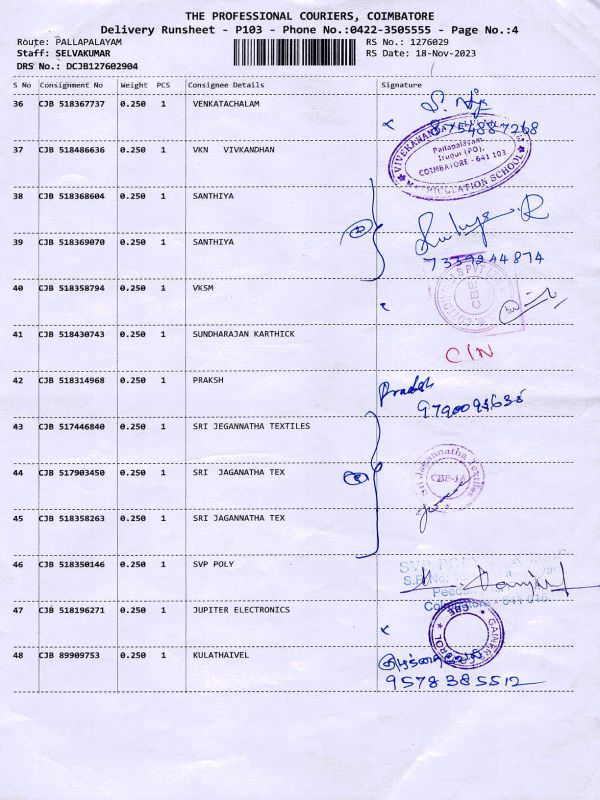 THE PROFESSIONAL COURIERS, COIMBATORE
Delivery Runsheet - P103 - Phone No.:0422-3505555 - Page No.:4
Route: PALLAPALAYAM RS No.: 1276029
Staff: SELVAKUMAR RS Date: 18-Nov-2023
DRS No.: DCJB127602904
S No Consignment No Weight PCS Consignee Details Signature
36 CJB 518367737 0.250 1 VENKATACHALAM
8754887268
37 CJB 518486636 0.250 1 VKN VIVKANDHAN
Pallapalayam,
Irugur (PO),
COIMBATORE - 641 103
MATRICULATION SCHOOL
38 CJB 518368604 0.250 1 SANTHIYA
39 CJB 518369070 0.250 1 SANTHIYA
7339244874
40 CJB 518358794 0.250 1 VKSM
CBE
41 CJB 518430743 0.250 1 SUNDHARAJAN KARTHICK
C/N
42 CJB 518314968 0.250 1 PRAKSH
43 CJB 517446840 0.250 1 SRI JEGANNATHA TEXTILES
44 CJB 517903450 0.250 1 SRI JAGANATHA TEX
Sri Jagannatha Textiles
45 CJB 518358263 0.250 1 SRI JAGANNATHA TEX
46 CJB 518350146 0.250 1 SVP POLY
47 CJB 518196271 0.250 1 JUPITER ELECTRONICS
CBE
48 CJB 89909753 0.250 1 KULATHAIVEL
9578385512